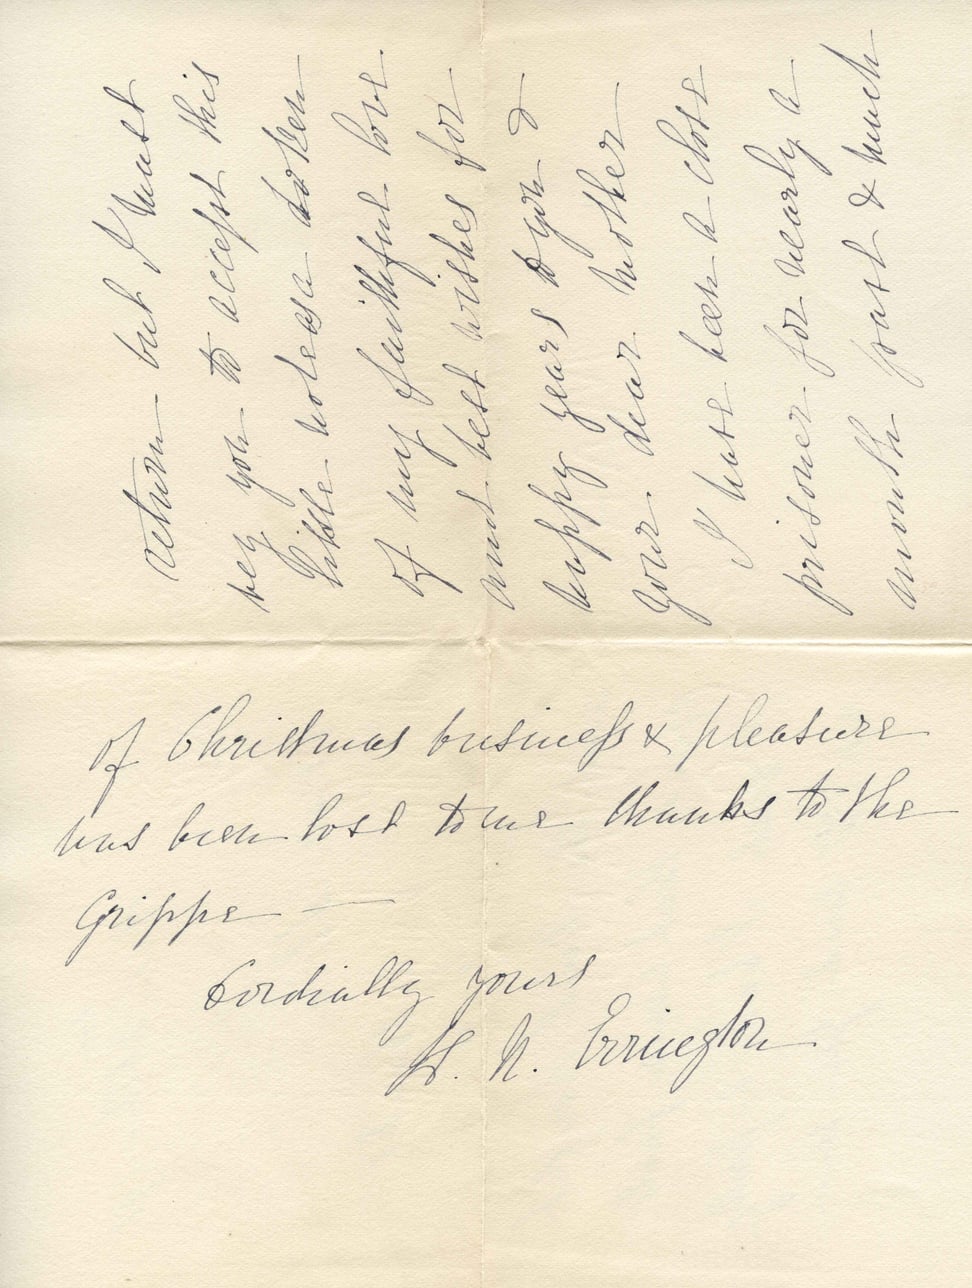 return but I must
beg you to accept this
little note as a token
of my faithful love
and best wishes for
happy years to you &
your dear Mother
I have been a close
prisoner for nearly a
month past & much
of Christmas business & pleasure
has been lost to me thanks to the
Grippe —
Cordially yours
H. N. Errington